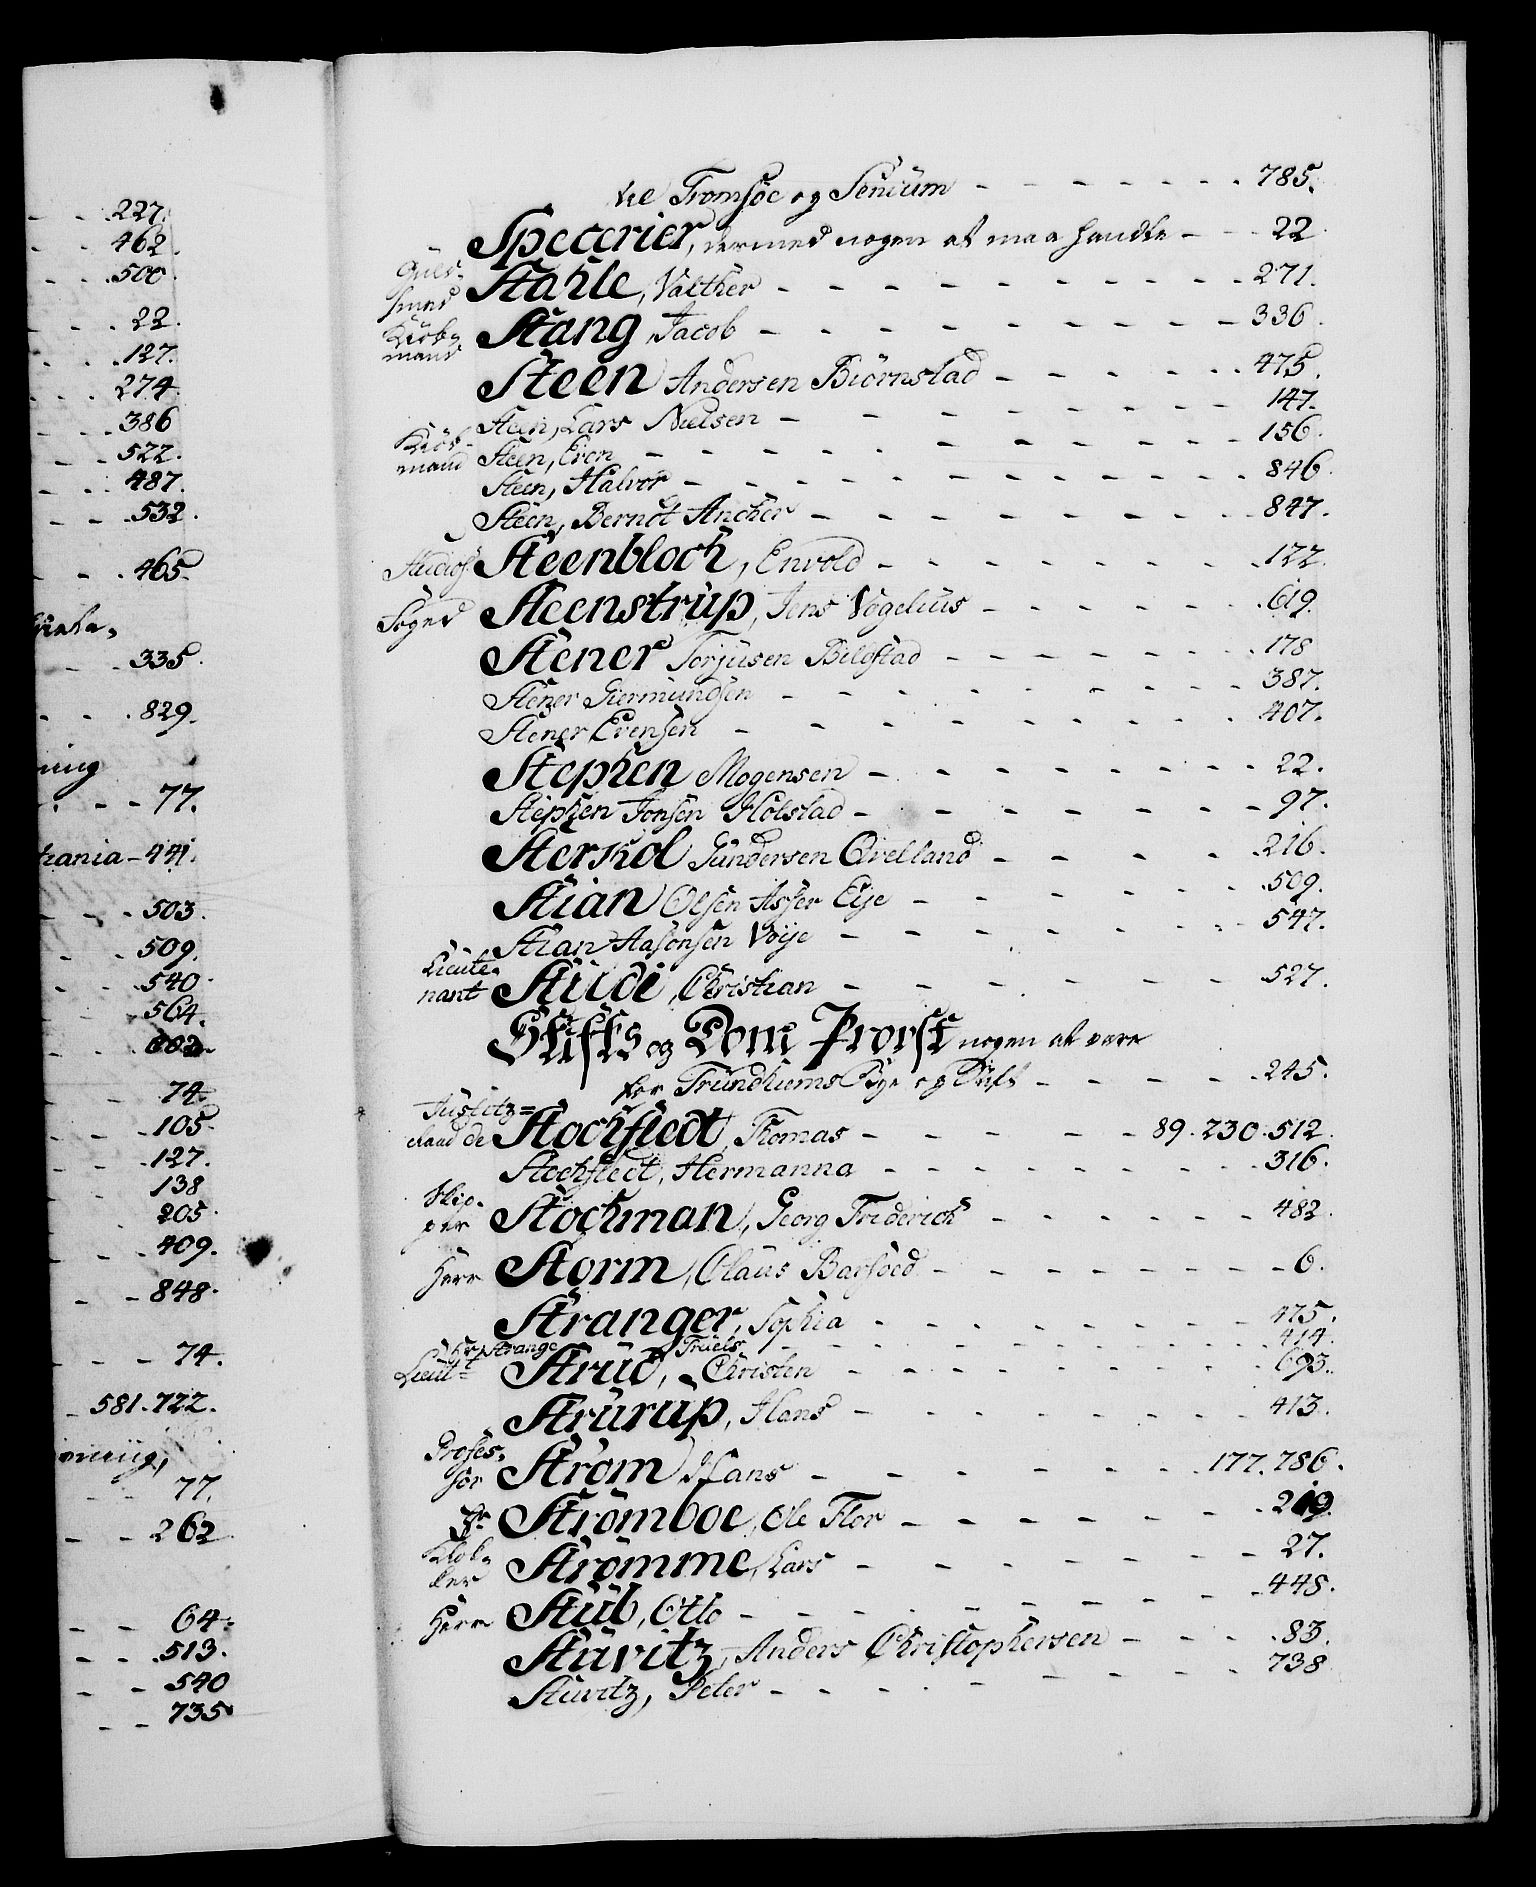 227.
462.
500.
22.
127.
274.
386
522.
487.
532.
465.
335.
829.
ning
77.
tiania - 441.
503.
509.
540.
564.
602
74.
105.
127.
138
205.
409.
848.
74.
581. 722.
77.
262
64.
513.
540
735
til Tromsöe og Senium - 785.
Specerier, dermed nogen at maa handle - 22
Guldsmed Stahle, Valther - 271.
Kiöbmand Stang, Jacob - 336.
Steen Andersen Biörnstad - 475.
Steen, Lars Nielsen - 147.
Kiöbmand Steen, Even - 156.
Steen, Halvor - 846.
Steen, Berndt Ancher - 847.
Studios. Steenbloch, Envold - 122.
Foged Steenstrup, Jens Vogelius - 619.
Stener Torjusen Bildstad - 178
Stener Giermundsen - 387.
Stener Evensen - 407.
Stephen Mogensen - 22.
Stephen Jonsen Holstad - 97.
Sterkol Gundersen Qvelland - 216.
Stian Olsen Asser Eije - 509.
Stian Aasonsen Voije - 547.
Lieutenant Stildi, Christian - 527.
Stifts og Dom Provst nogen at være
for Trundhiems Bye og Stift - 245.
Justitzraad de Stochfledt, Thomas - 89. 230. 512.
Stochfledt, Hermanna - 316.
Skipper Stochman, Georg Friderich - 482.
Herr Storm, Claus Barfoed - 6.
Stranger, Sophia - 475.
Strange Truels - 414.
Lieut: Strud, Christen - 693.
Strurup, Hans - 413.
Professor Ström, Hans - 177. 786.
Hr. Strömboe, Ole Flor - 219.
Klokker Strömme, Lars - 27.
Herr Stub, Otto - 448.
Stuvitz, Anders Christophersen - 83.
Stuvitz, Peter - 738